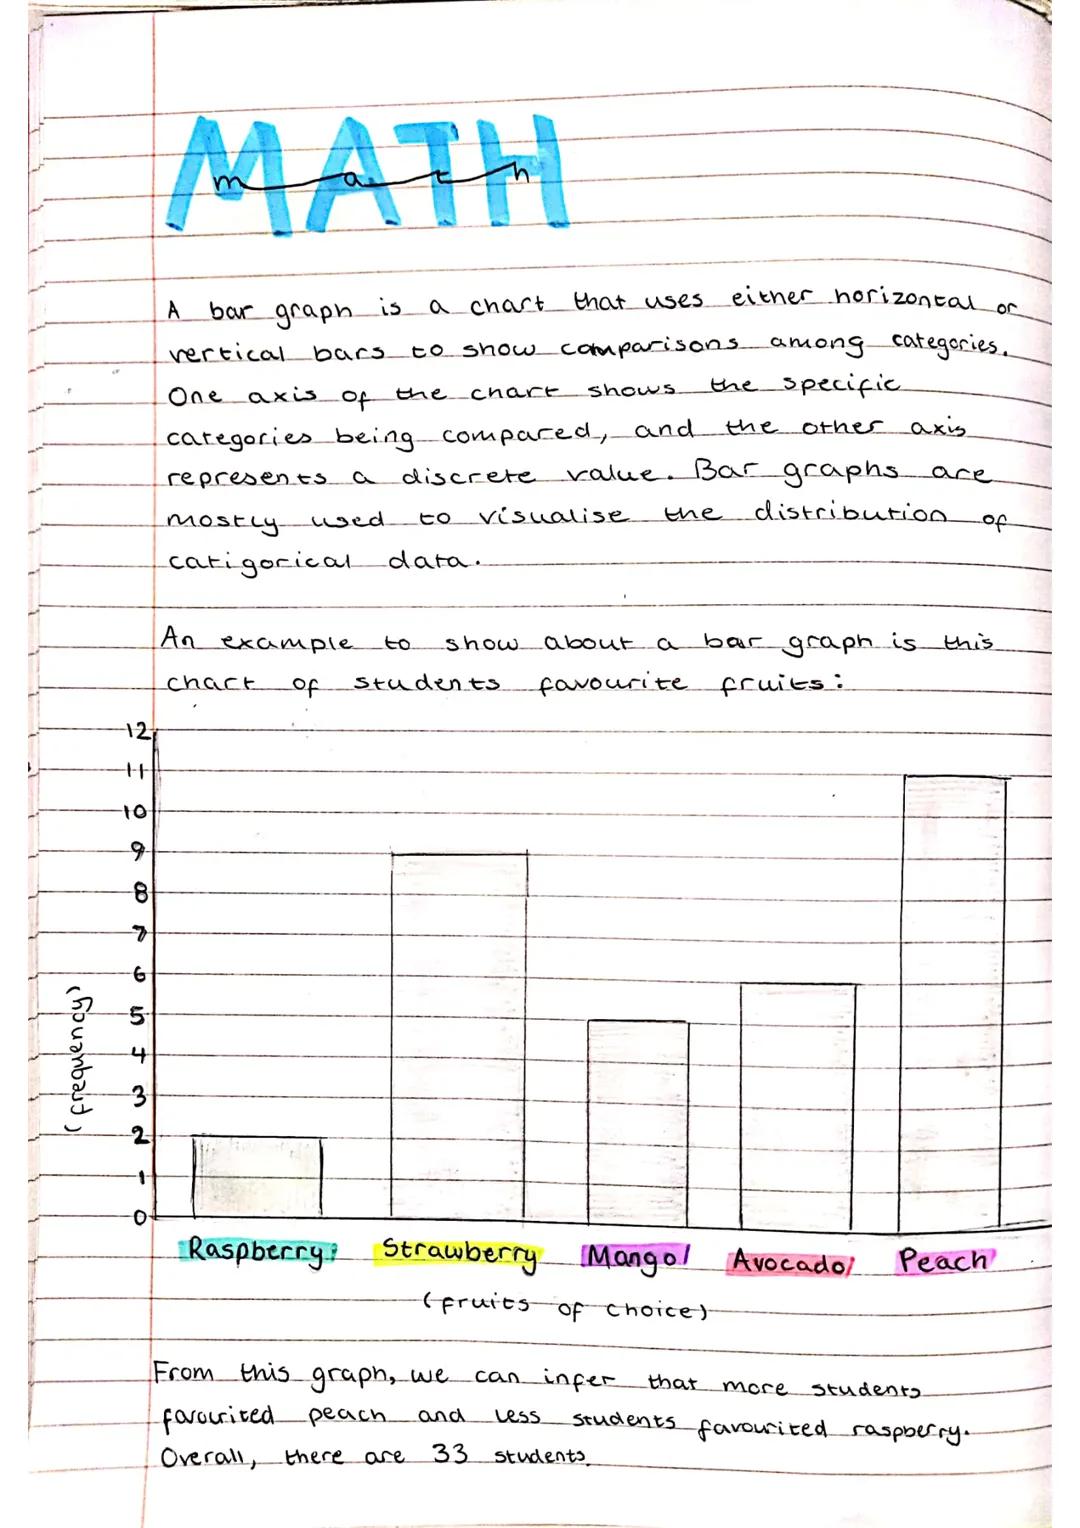 MATH
math
A bar graph is a chart that uses either horizontal or
vertical bars to show comparisons among categories.
One axis of the chart shows the specific
categories being compared, and the other axis
represents a discrete value. Bar graphs are
mostly used to visualise the distribution of
catigorical data.
An example to show about a bar graph is this
chart of students favourite fruits:
12
11
10
9
8
7
6
5
4
3
2
1
0
(frequency)
Raspberry Strawberry Mango Avocado Peach
(fruits of choice)
From this graph, we can infer that more students
favourited peach and less students favourited raspberry.
Overall, there are 33 students.